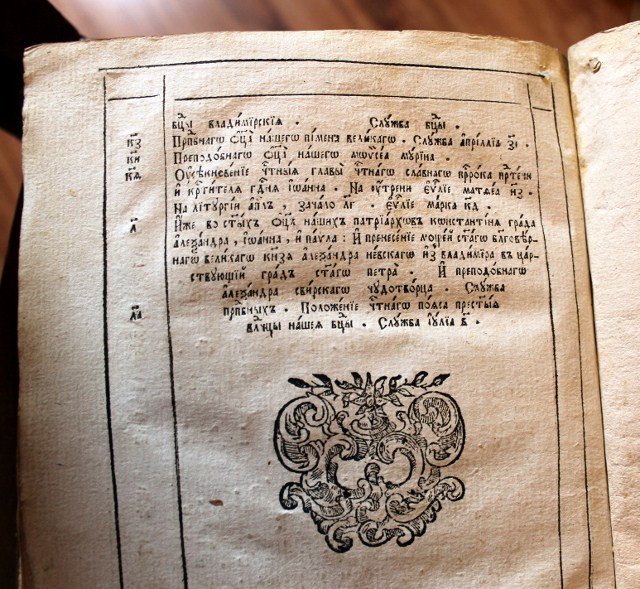 бц҃ы владимїрскїѧ . Слꙋжба бц҃ы .
к҃з Прпⷣбнагѡ ѻ҆ц҃а̀ на́шегѡ пі́мена вели́кагѡ . Слꙋжба а҆прі́ллїа з҃і .
к҃и Преподо́бнагѡ ѻ҆ц҃а̀ на́шегѡ мѡѷсе́а мꙋ́рина .
к҃ѳ Оу҆сѣкнове́нїе чⷭ҇тны́ѧ главы̀ чⷭ҇тна́гѡ сла́внагѡ прⷪ҇ро́ка прⷣте́чи
и҆ крⷭ҇ти́телѧ гдⷭ҇нѧ і҆ѡа́нна . На ᲂу҆́трени є҆ѵⷢ҇лїе матѳе́а н҃з .
На лїтꙋргі́и а҆пⷭ҇лъ , зача́ло л҃г . є҆ѵⷢ҇лїе ма́рка к҃д .
л҃ И҆̀же во ст҃ы́хъ ѻ҆ц҃ъ на́шихъ патрїа́рхѡвъ кѡнстанті́нѧ гра́да
а҆леѯа́ндра , і҆ѡа́нна , и҆ па́ѵла : И҆ пренесе́нїе моще́й ст҃а́гѡ бл҃говѣ́р-
нагѡ вели́кагѡ кнѧ́зѧ а҆леѯа́ндра не́вскагѡ и҆з̾ влади́мїра въ ца́р-
ствꙋющїй гра́дъ ст҃а́гѡ петра̀ . И҆ преподо́бнагѡ
а҆леѯа́ндра сви́рскагѡ чꙋдотво́рца . Слꙋ́жба
л҃а прпⷣбныхъ . Положе́нїе чⷭ҇тна́гѡ по́ѧса прест҃ы́ѧ
влⷣчцы на́шеѧ бц҃ы . Слꙋ́жба і҆ꙋ́лїа в҃ .